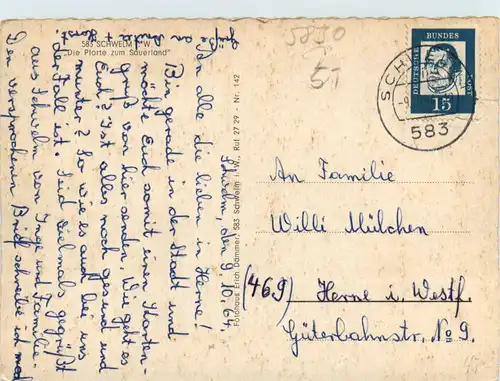 583 SCHWELM i. W.
"Die Pforte zum Sauerland"
Schwelm, den 9.10.64.
An alle die Lieben in Herne!
Bin gerade in der Stadt und
möchte Euch somit einen Karten-
gruß von hier senden. Wie geht es
Euch? Ist alles noch gesund und
munter? So wie es auch bei uns
der Fall ist. Seid vielmals gegrüßt
aus Schwelm von Inge und Familie.
Den versprochenen Brief schreibe ich
Fotohaus Erich Dämmer, 583 Schwelm i. W., Ruf 27 29 - Nr. 142
5830
DEUTSCHE BUNDES POST
15
583
An Familie
Willi Mülchen
(469) Herne i. Westf.
Güterbahnstr. No 9.